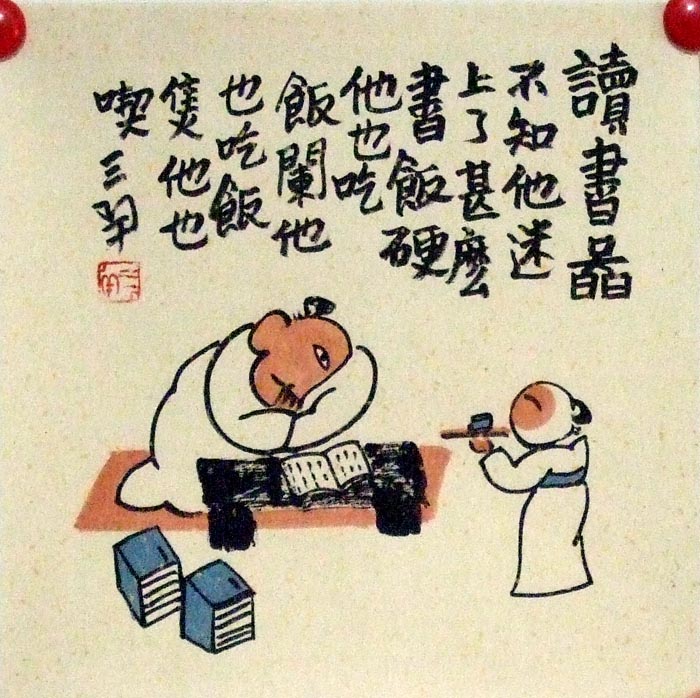 讀書
不知他迷
上了甚麼
書飯硬
他也吃
飯闌他
也吃飯
隻他也
喫三